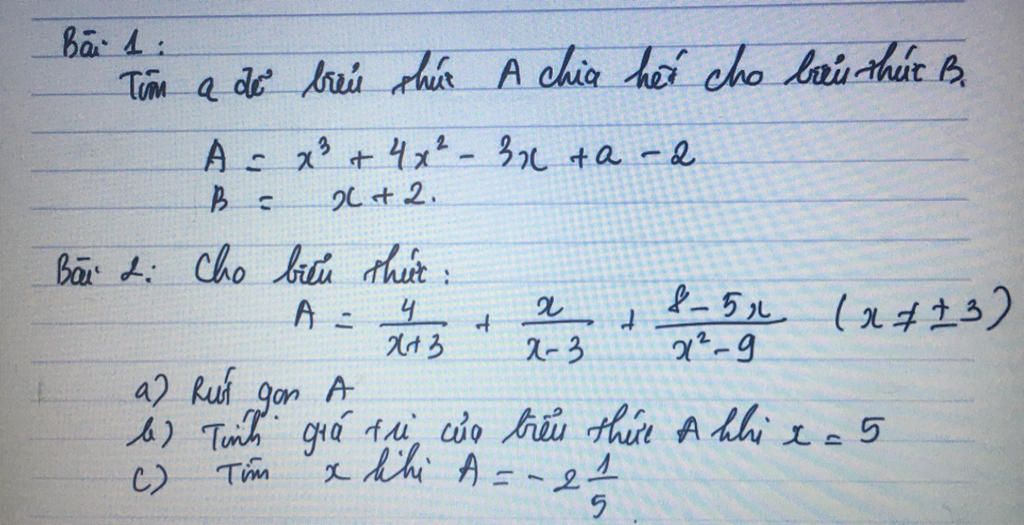 Bài 1:
Tìm a để biểu thức A chia hết cho biểu thức B.
A = x³ + 4x² - 3x + a - 2
B = x + 2.
Bài 2: Cho biểu thức:
A = 4/(x+3) + x/(x-3) + (8-5x)/(x²-9) (x ≠ ±3)
a) Rút gọn A
b) Tính giá trị của biểu thức A khi x = 5
c) Tìm x khi A = -2 1/5